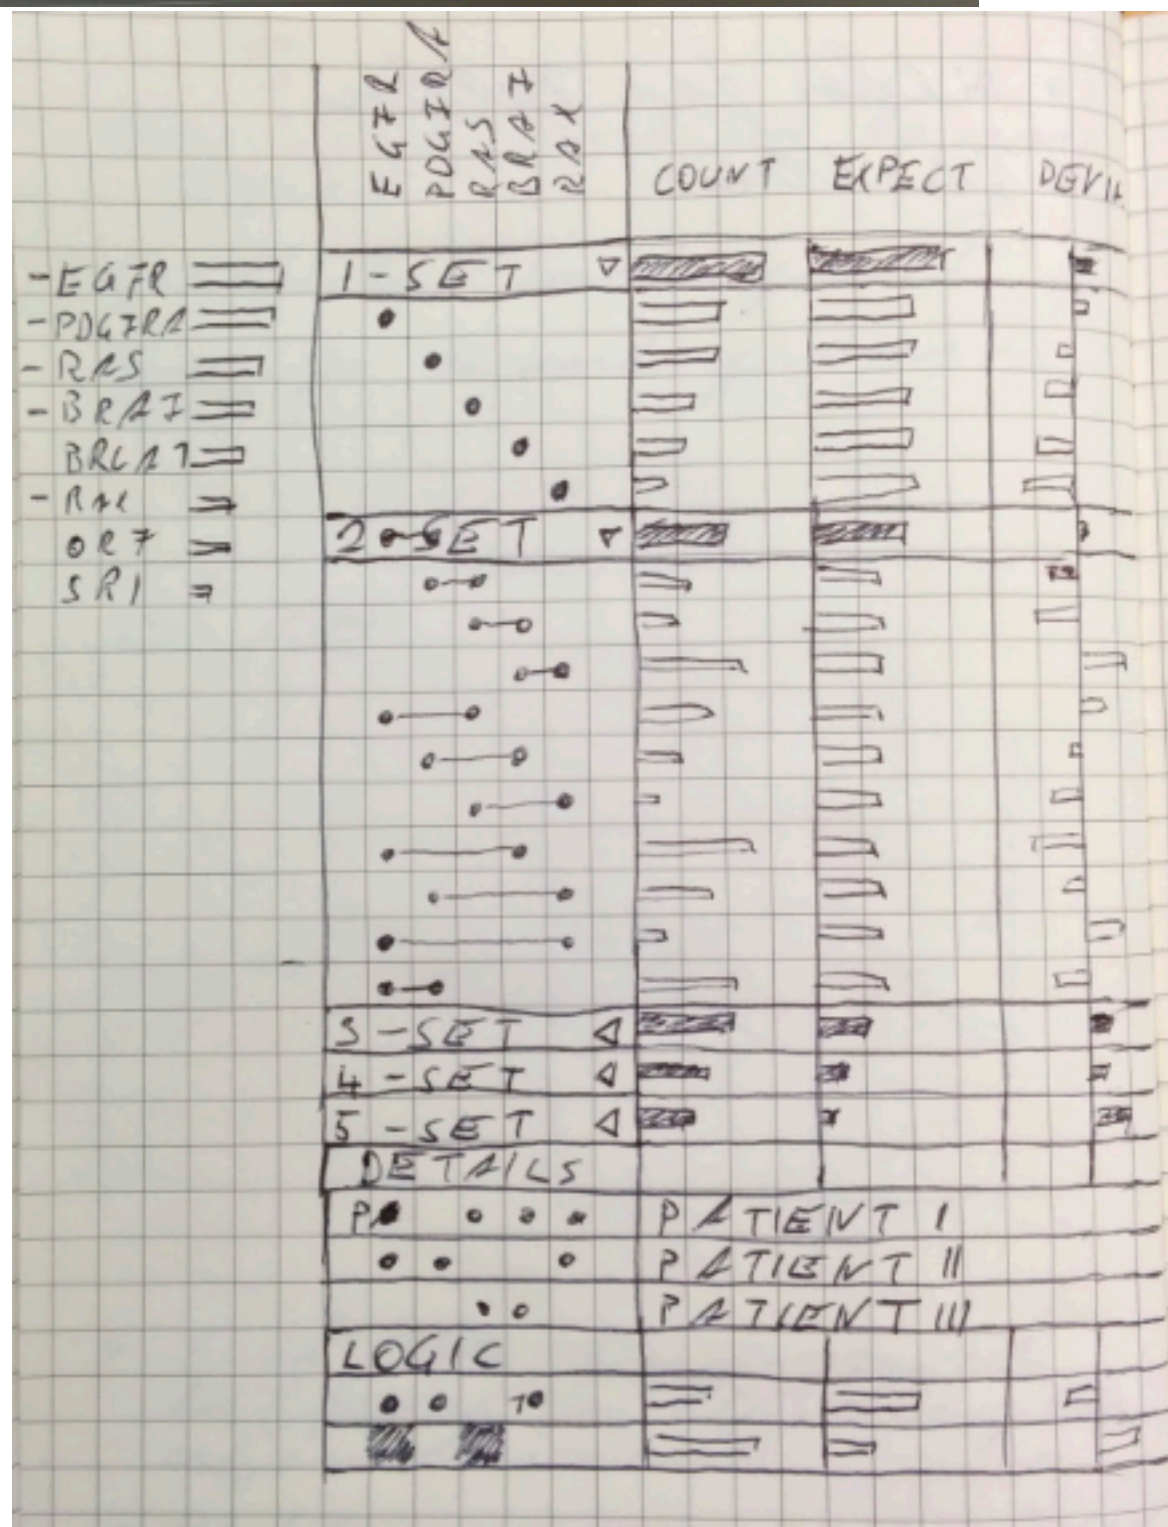 EGFR
PDGFRA
RAS
BRAF
RAK
COUNT EXPECT
-EGFR
-PDGFRA
-RAS
-BRAF
BRCA1
-RAK
ORF
SRI
1-SET
2-SET
3-SET
4-SET
5-SET
DETAILS
PATIENT I
PATIENT II
PATIENT III
LOGIC